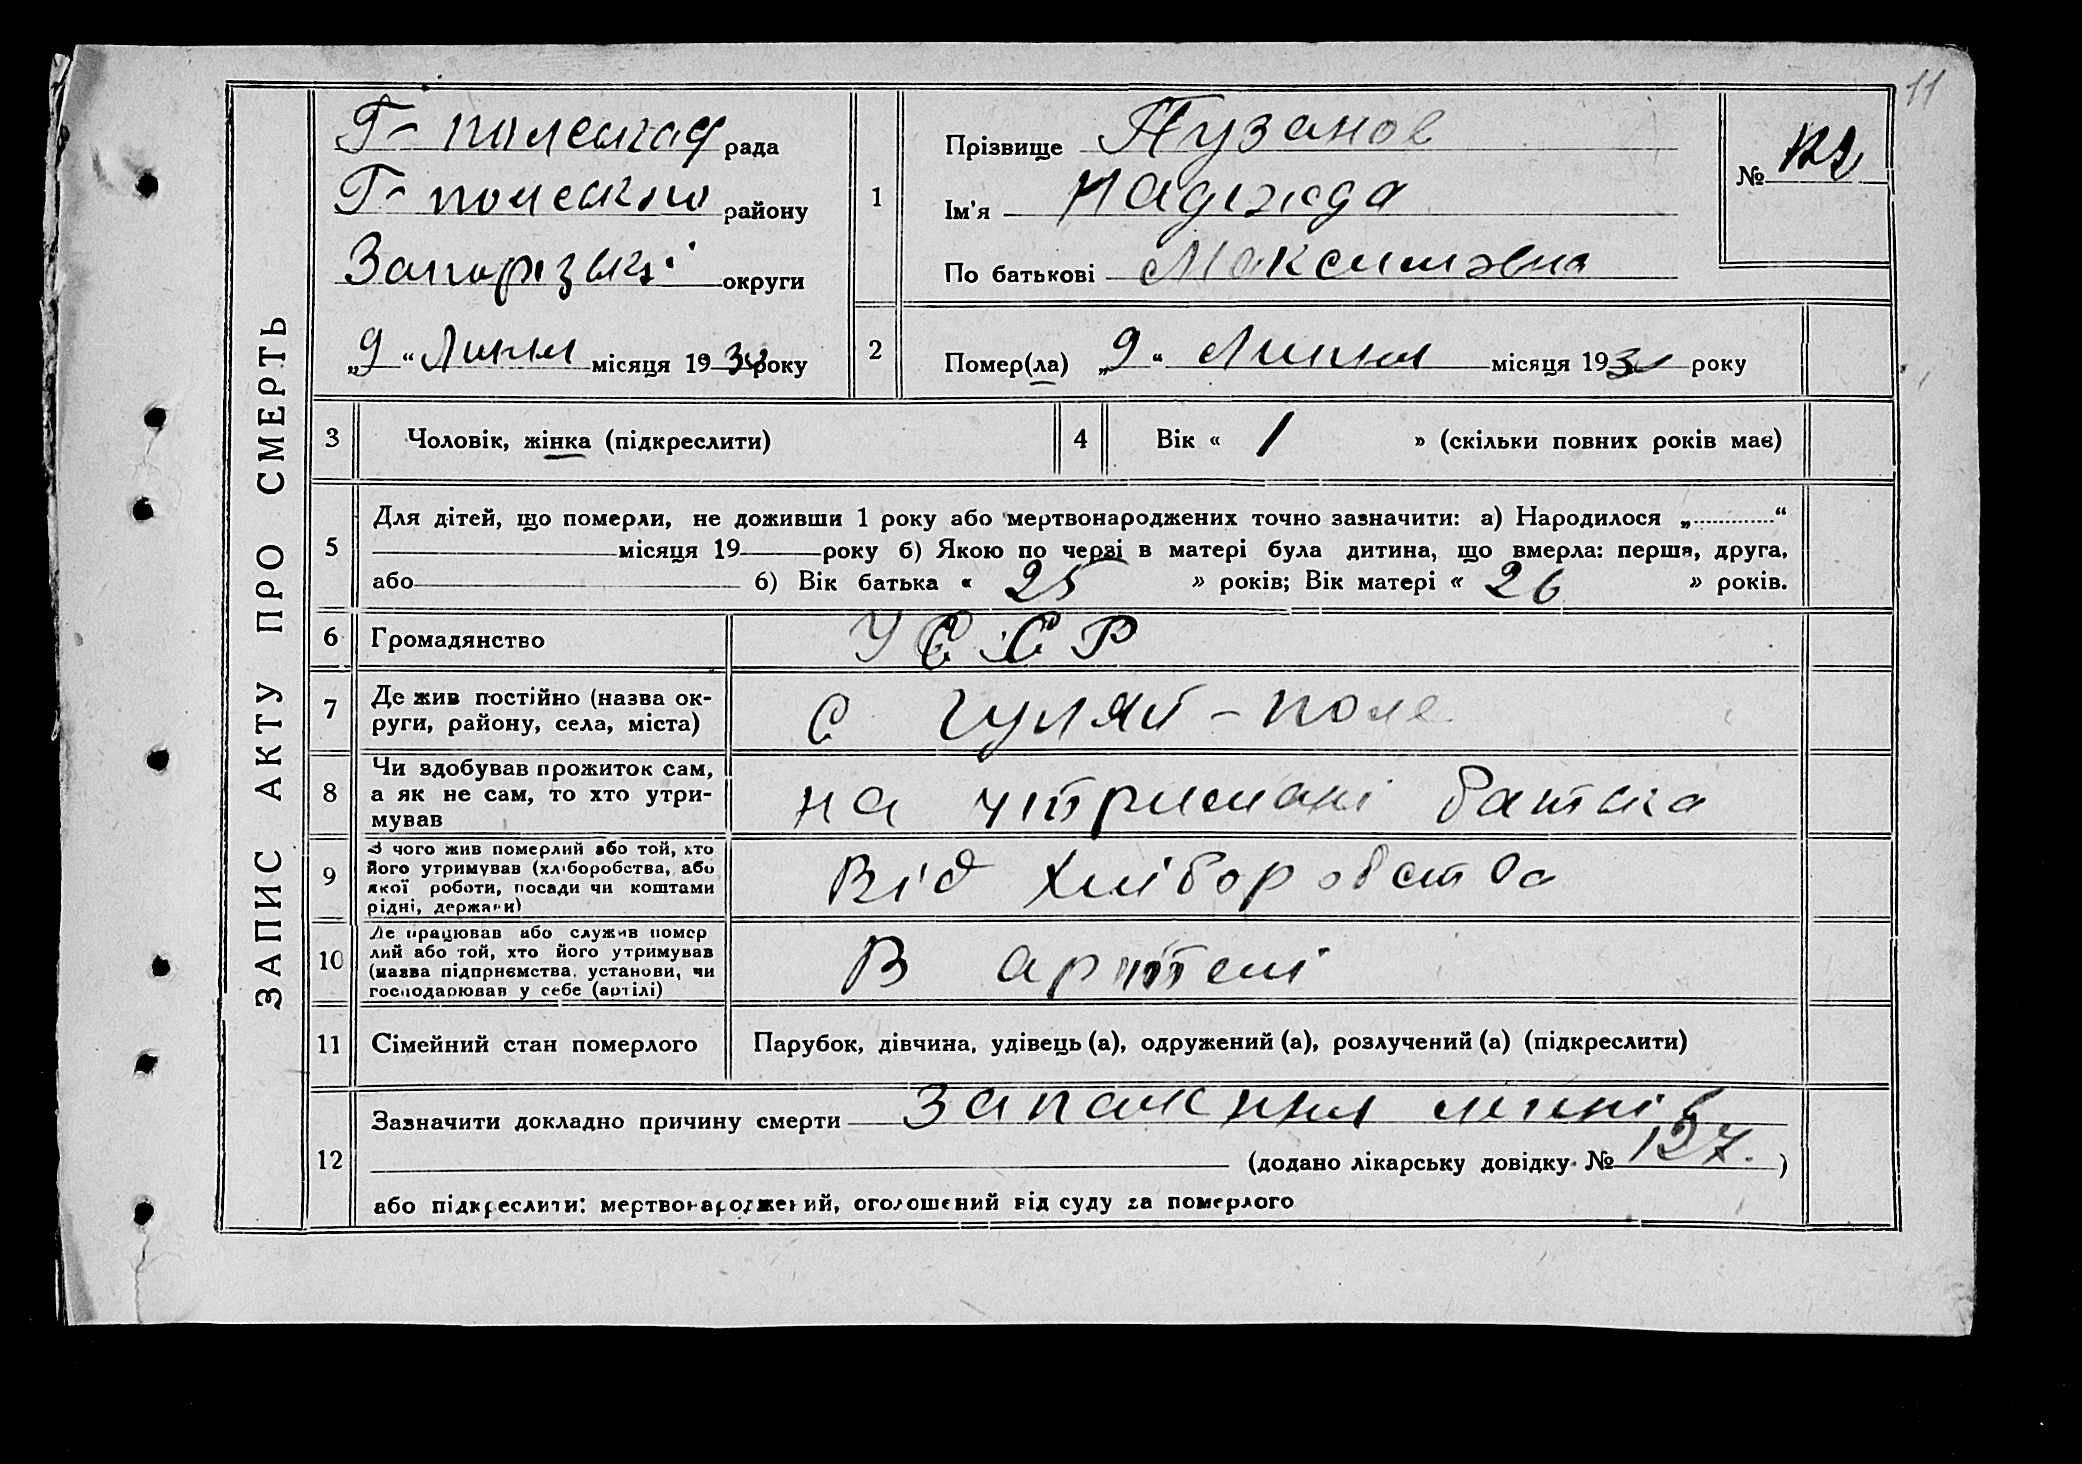 11
ЗАПИС АКТУ ПРО СМЕРТЬ
Г-полеська рада
Г-полеського району
Запорізькі округи
„9“ Липня місяця 1930 року
1
Прізвище Пузанов
Ім'я Надежда
По батькові Максимовна
№
2
Помер(ла) „9“ Липня місяця 193 року
3 Чоловік, жінка (підкреслити)
4 Вік « 1 » (скільки повних років має)
5
Для дітей, що померли, не доживши 1 року або мертвонароджених точно зазначити: а) Народилося „ “
місяця 19 року б) Якою по черзі в матері була дитина, що вмерла: перша, друга,
або б) Вік батька « 25 » років; Вік матері « 26 » років.
6 Громадянство УССР
7 Де жив постійно (назва ок-
руги, району, села, міста)
с Гуляй-поле
8 Чи здобував прожиток сам,
а як не сам, то хто утри-
мував
на утримані батька
9 З чого жив померлий або той, хто
його утримував (хліборобства, або
якої роботи, посади чи коштами
рідні, держави)
Від хліборобства
10 Де працював або служив помер
лий або той, хто його утримував
(назва підприємства, установи, чи
господарював у себе (артілі)
В артелі
11 Сімейний стан померлого
Парубок, дівчина, удівець (а), одружений (а), розлучений (а) (підкреслити)
12
Зазначити докладно причину смерти запаження легенів
(додано лікарську довідку № 127. )
або підкреслити: мертвонароджений, оголошений від суду за померлого